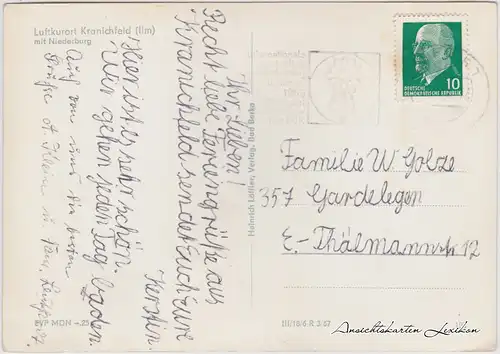 Luftkurort Kranichfeld (Ilm)
mit Niederburg
Ihr Lieben!
Recht liebe Feriengrüße aus
Kranichfeld sendet Euch Eure
Kerstin.
Hier ist es sehr schön.
Wir gehen jeden Tag baden.
Auch von uns die besten
Grüße
EVP MDN -,25
Heinrich Löffler, Verlag, Bad Berka
DEUTSCHE
DEMOKRATISCHE REPUBLIK
10
Familie W. Golze
357 Gardelegen
E.-Thälmannstr 12
III/18/6 R 3/67
Ansichtskarten Lexikon